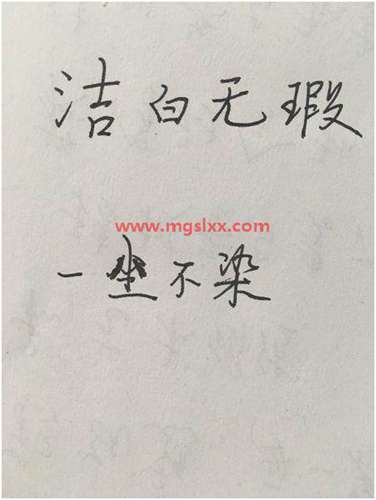 洁白无瑕
www.mgslxx.com
一坐不染